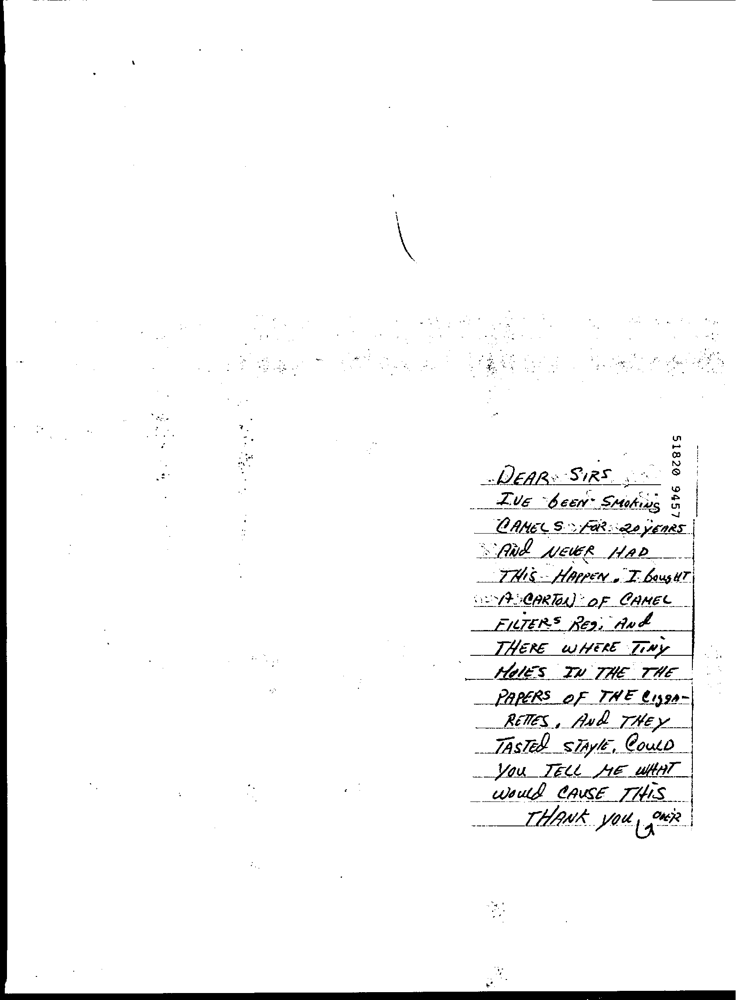 51820 9457
DEAR SIRS
I'VE BEEN SMOKING
CAMELS FOR 20 YEARS
AND NEVER HAD
THIS HAPPEN. I bougHT
A CARTON OF CAMEL
FILTERS Reg. AND
THERE WHERE TINY
HOLES IN THE THE
PAPERS OF THE CiggA-
RETTES, AND THEY
TASTED STAYLE, COULD
YOU TELL ME WHAT
WOULD CAUSE THIS
THANK YOU, OVER